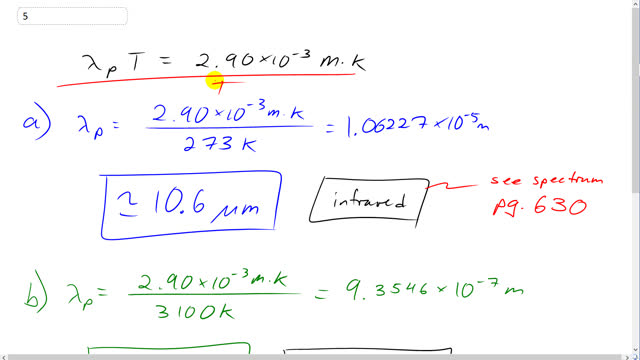 5
λp T = 2.90×10⁻³ m·K
a) λp = 2.90×10⁻³ m·K / 273 K = 1.06227×10⁻⁵ m
≃ 10.6 μm
infrared
see spectrum
pg. 630
b) λp = 2.90×10⁻³ m·K / 3100K = 9.3546×10⁻⁷ m